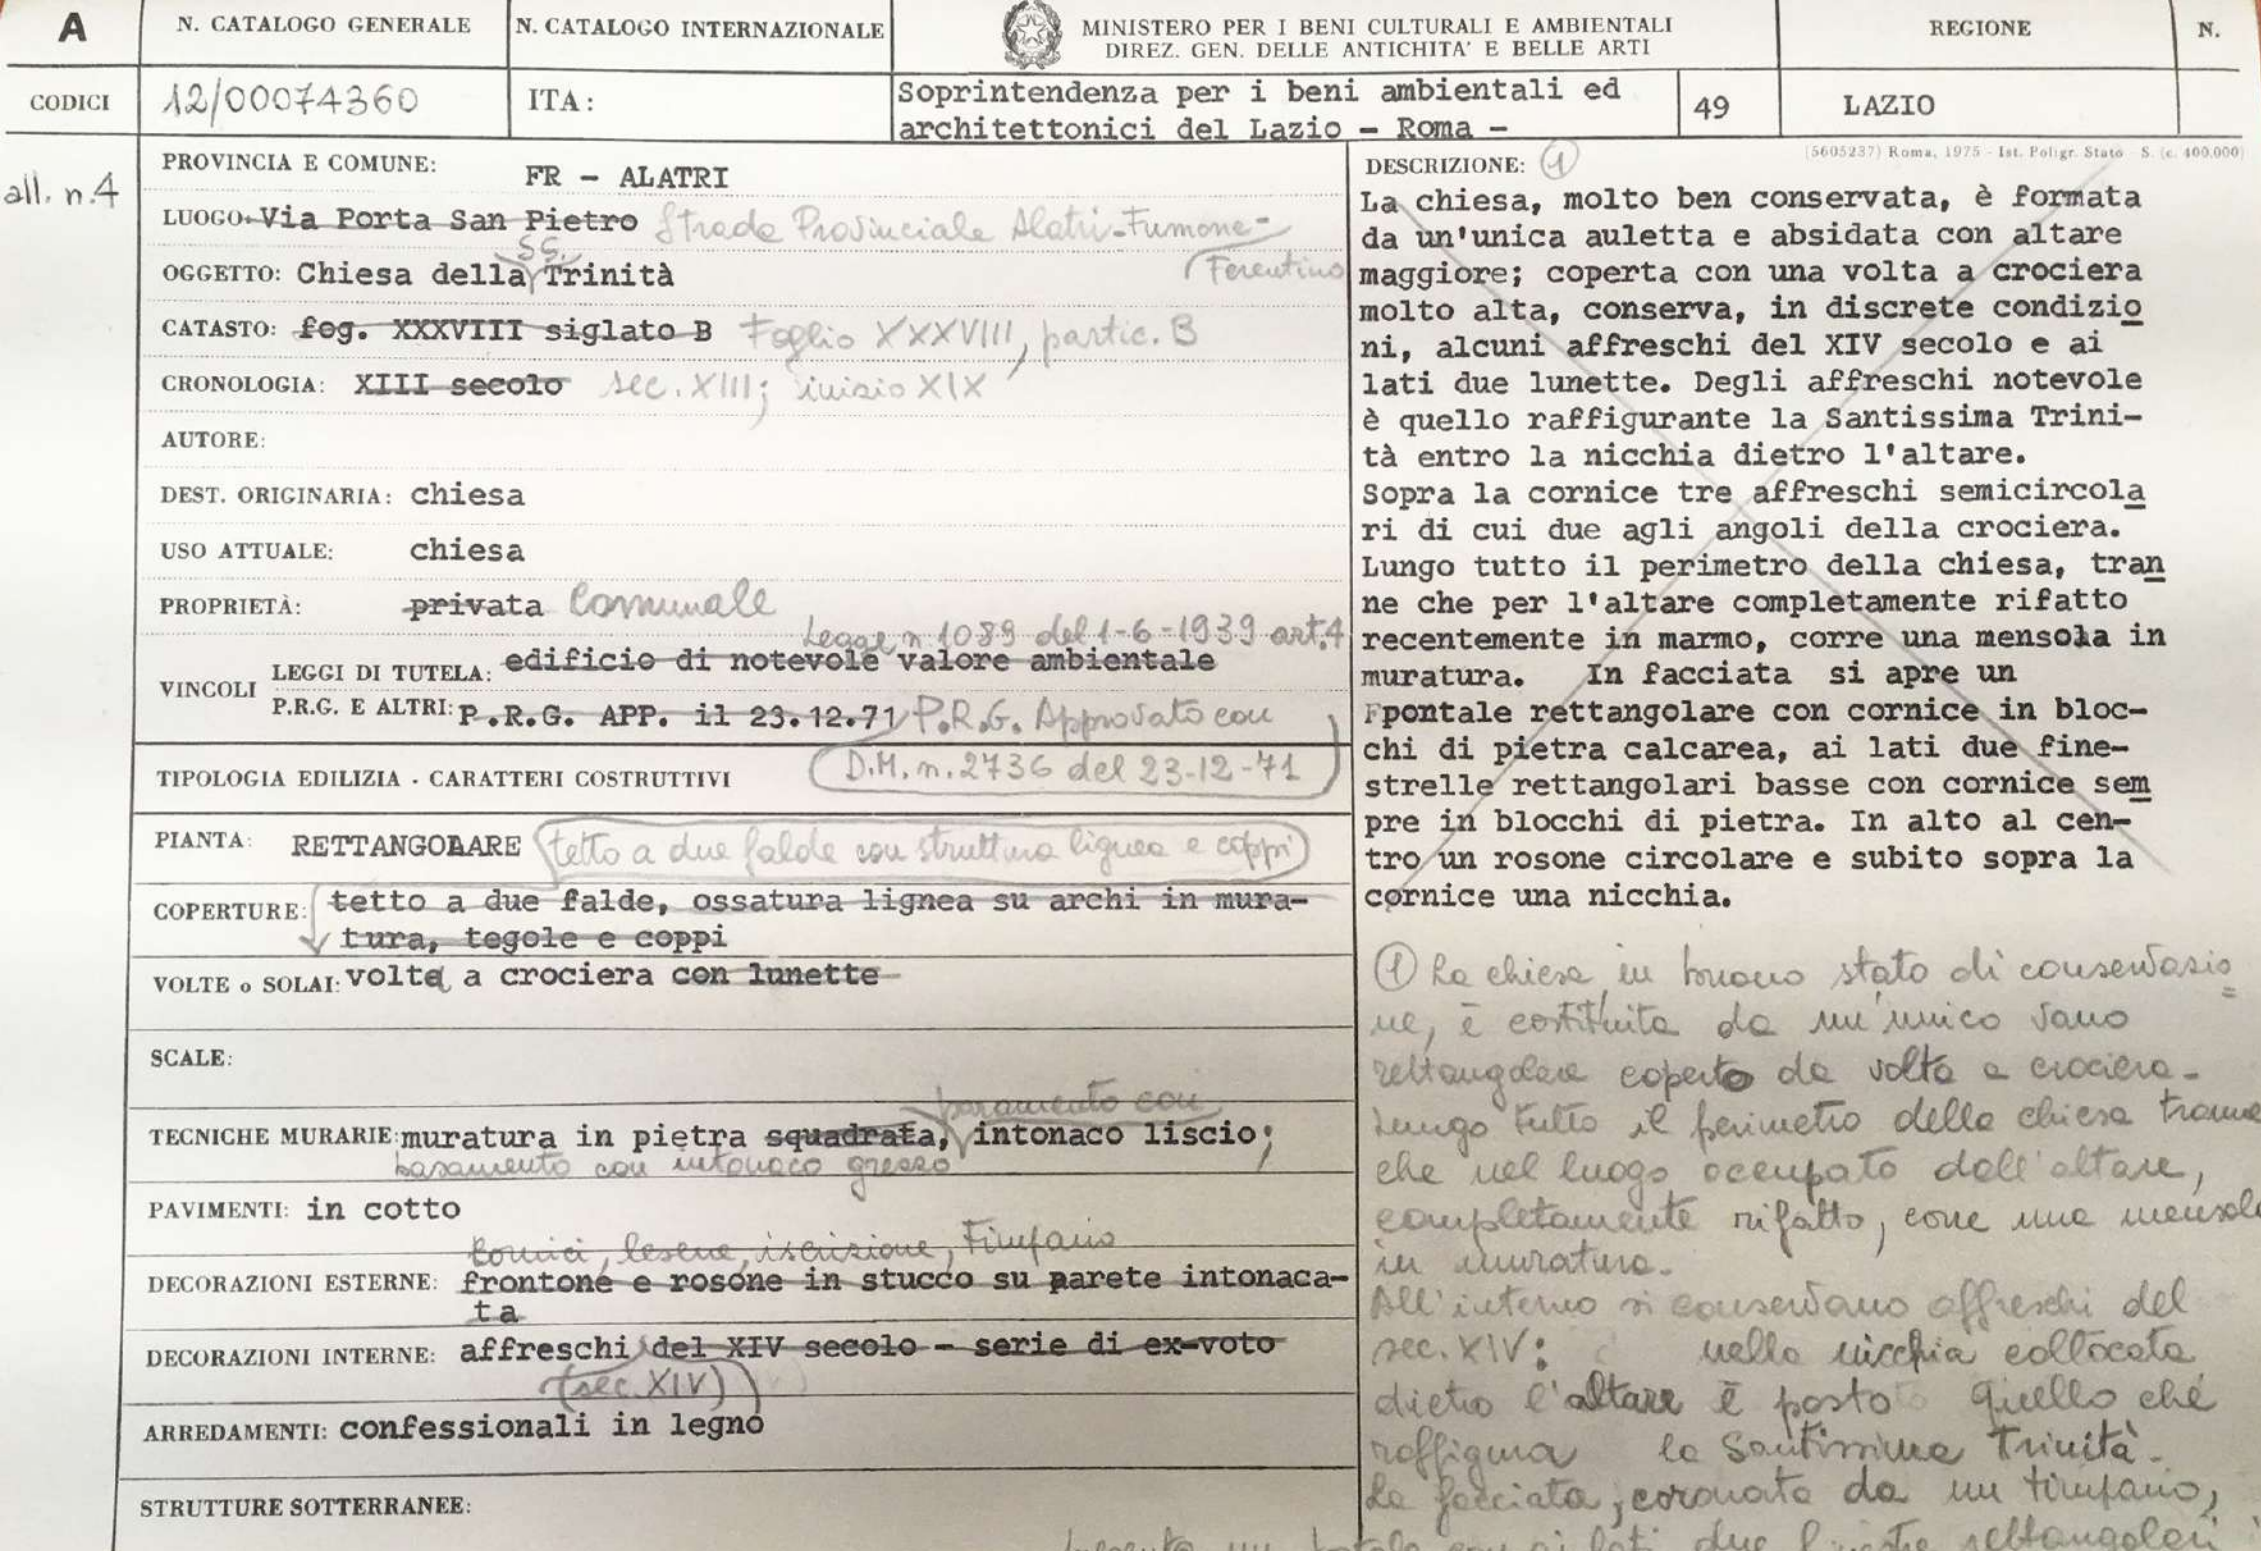 A
N. CATALOGO GENERALE
N. CATALOGO INTERNAZIONALE
MINISTERO PER I BENI CULTURALI E AMBIENTALI
DIREZ. GEN. DELLE ANTICHITA' E BELLE ARTI
REGIONE
N.
CODICI
12/00074360
ITA:
Soprintendenza per i beni ambientali ed
architettonici del Lazio - Roma -
49
LAZIO
all. n.4
PROVINCIA E COMUNE: FR - ALATRI
LUOGO: Via Porta San Pietro Strada Provinciale Alatri-Fumone-
Ferentino
SS.
OGGETTO: Chiesa della Trinità
CATASTO: fog. XXXVIII siglato B Foglio XXXVIII, partic. B
CRONOLOGIA: XIII secolo sec. XIII; inizio XIX
AUTORE:
DEST. ORIGINARIA: chiesa
USO ATTUALE: chiesa
PROPRIETÀ: privata Comunale
Legge n. 1089 del 1-6-1939 art.4
VINCOLI
LEGGI DI TUTELA: edificio di notevole valore ambientale
P.R.G. E ALTRI: P.R.G. APP. il 23.12.71 P.R.G. Approvato con
D.M. n. 2736 del 23-12-71
TIPOLOGIA EDILIZIA - CARATTERI COSTRUTTIVI
PIANTA: RETTANGOLARE tetto a due falde con struttura lignea e coppi
COPERTURE: tetto a due falde, ossatura lignea su archi in mura-
tura, tegole e coppi
VOLTE o SOLAI: volta a crociera con lunette
SCALE:
paramento con
TECNICHE MURARIE: muratura in pietra squadrata, intonaco liscio;
basamento con intonaco grezzo
PAVIMENTI: in cotto
Cornici, lesene, iscrizione, Timpano
DECORAZIONI ESTERNE: frontone e rosone in stucco su parete intonaca-
ta
DECORAZIONI INTERNE: affreschi del XIV secolo - serie di ex-voto
(sec. XIV)
ARREDAMENTI: confessionali in legno
STRUTTURE SOTTERRANEE:
(5605237) Roma, 1975 - Ist. Poligr. Stato - S. (c. 400.000)
DESCRIZIONE: 1
La chiesa, molto ben conservata, è formata
da un'unica auletta e absidata con altare
maggiore; coperta con una volta a crociera
molto alta, conserva, in discrete condizio
ni, alcuni affreschi del XIV secolo e ai
lati due lunette. Degli affreschi notevole
è quello raffigurante la Santissima Trini-
tà entro la nicchia dietro l'altare.
Sopra la cornice tre affreschi semicircola
ri di cui due agli angoli della crociera.
Lungo tutto il perimetro della chiesa, tran
ne che per l'altare completamente rifatto
recentemente in marmo, corre una mensola in
muratura. In facciata si apre un
Fpontale rettangolare con cornice in bloc-
chi di pietra calcarea, ai lati due fine-
strelle rettangolari basse con cornice sem
pre in blocchi di pietra. In alto al cen-
tro un rosone circolare e subito sopra la
cornice una nicchia.
1 La chiesa, in buono stato di conservazio=
ne, è costituita da un unico vano
rettangolare coperto da volta a crociera.
Lungo tutto il perimetro della chiesa tranne
che nel luogo occupato dall'altare,
completamente rifatto, corre una mensola
in muratura.
All'interno si conservano affreschi del
sec. XIV: nella nicchia collocata
dietro l'altare è posto quello che
raffigura la Santissima Trinità.
La facciata, coronata da un timpano,
due rettangolari